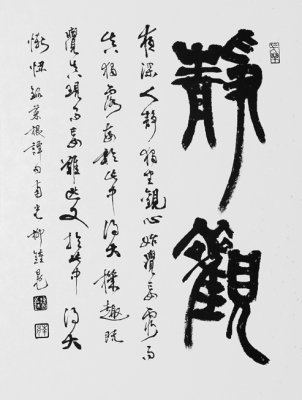 靜觀
夜深人靜獨坐觀心始覺妄窮而
真獨露每於此中得大機趣既
覺真現而妄難逃又於此中得大
慚忸 錄菜根譚句